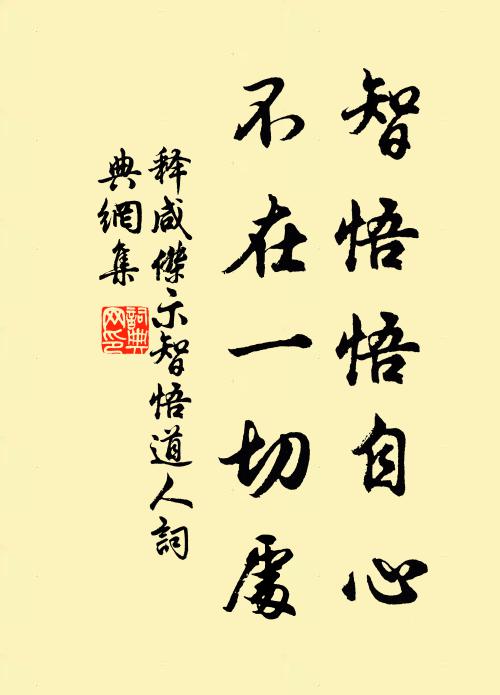 智悟悟自心
不在一切處
释咸傑示智悟道人詞
典網集
詞典
网印